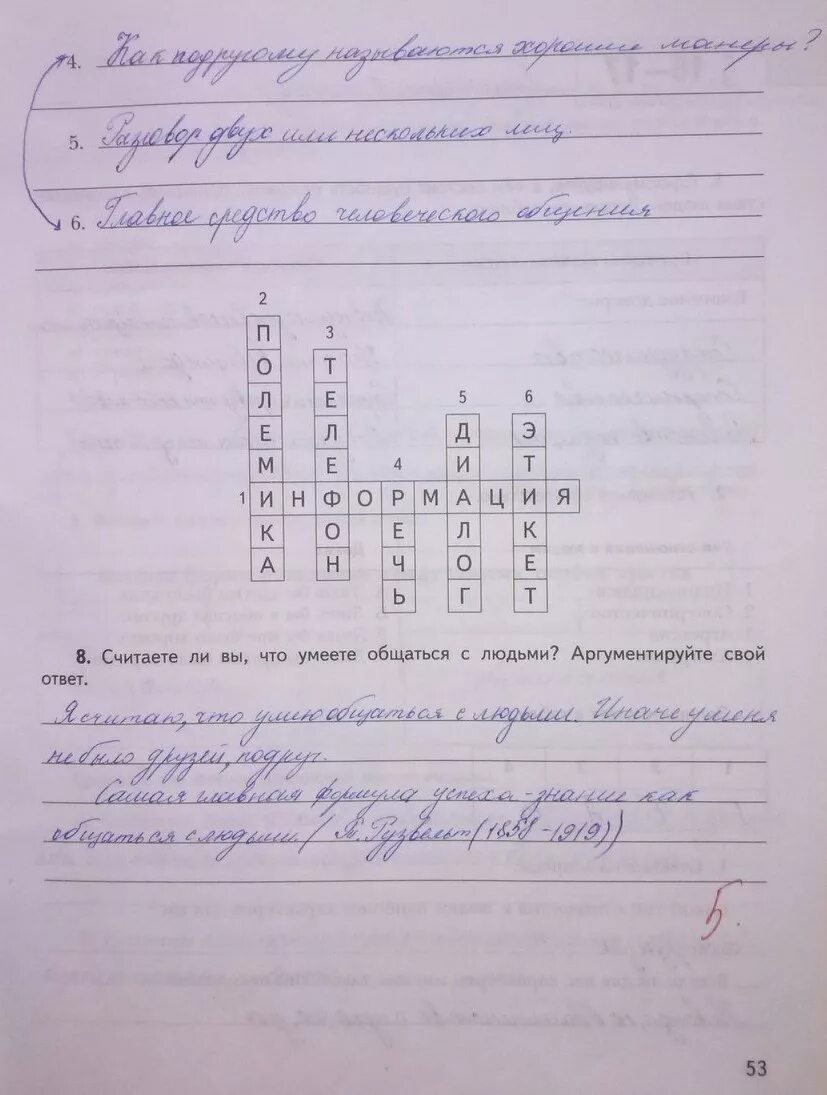 4. Как подругому называются хорошие манеры?
5. Разговор двух или нескольких лиц.
6. Главное средство человеческого общения
2
П
3
О
Т
Л
Е
5
6
Е
Л
Д
Э
М
Е
4
И
Т
1 И Н Ф О Р М А Ц И Я
К
О
Е
Л
К
А
Н
Ч
О
Е
Ь
Г
Т
8. Считаете ли вы, что умеете общаться с людьми? Аргументируйте свой
ответ.
Я считаю, что умею общаться с людьми. Иначе у меня
не было друзей, подруг.
Самая главная формула успеха - знание как
общаться с людьми. ( Т. Рузвельт (1858 - 1919))
5
53